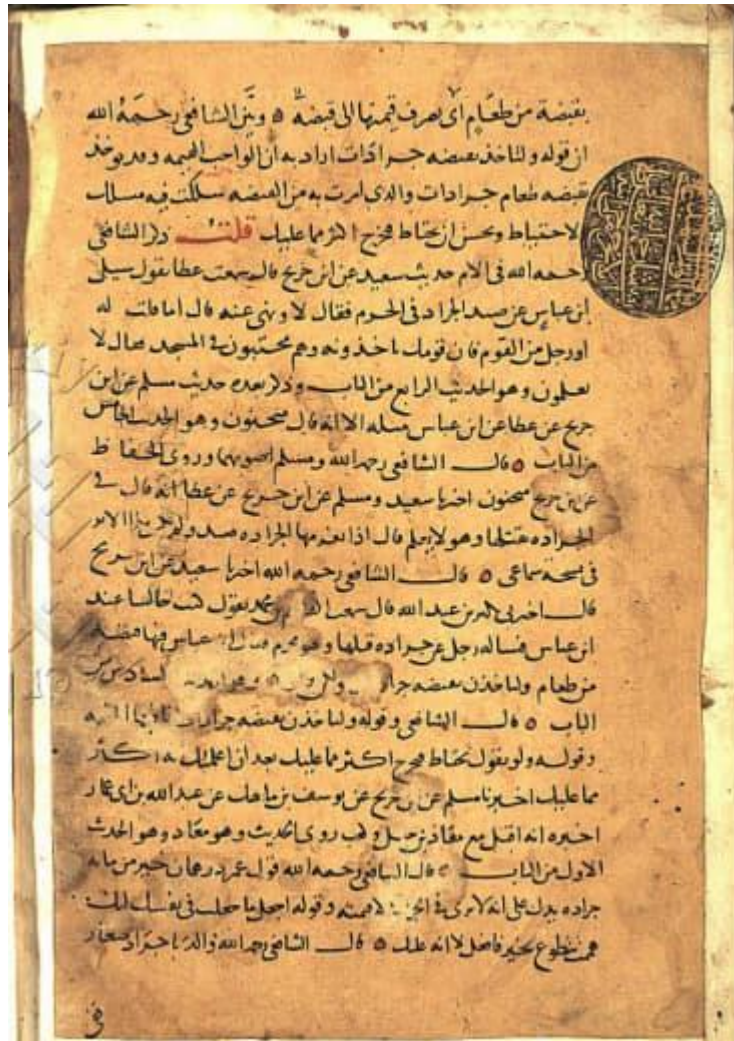 بقبضة من طعام أي تعرف قيمتها الى قبضة ٥ وبين الشافعي رحمه الله
ان قوله ولتاخذن بقبضه جرادات اراد به ان الواجب القيمه
بقبضه طعام جرادات والذي امرت به من القبضه سلكت فيه مسلك
الاحتياط وبحسن ان يحتاط فيخرج اكثر مما عليك قلت ذكر الشافعي
رحمه الله في الام حديث سعيد عن ابن جريج قال سمعت عطا يقول سيل
ابن عباس عن صيد الجراد في الحرم فقال لا ونهى عنه قال اما قلت له
او رجل من القوم فان قومك ياخذونه وهم محتبون في المسجد فقال لا
يعلمون وهو الحديث الرابع من الباب وذكر بعده حديث مسلم عن ابن
جريج عن عطا عن ابن عباس مثله الا انه قال منحنون وهو الحديث الخامس
من الباب ٥ قال الشافعي رحمه الله ومسلم اصوبهما وروى الحفاظ
عن ابن جريج منحنون اخبرنا سعيد ومسلم عن ابن جريج عن عطا انه قال في
الجراده يقتلها وهو لا يعلم قال اذا يغرمها الجراده صيد
في نسخة سماعي ٥ قال الشافعي رحمه الله اخبرنا سعيد عن ابن جريج
قال اخبرني بكير بن عبد الله قال سمعت القاسم بن محمد يقول كنت جالسا عند
ابن عباس فساله رجل عن جراده قتلها وهو محرم فقال ابن عباس فيها قبضه
من طعام ولتاخذن بقبضه جرادات ولكن ولو السادس من
الباب ٥ قال الشافعي وقوله ولتاخذن بقبضه جرادات انما فيها القيمه
وقوله ولو يقول تحتاط فتخرج اكثر مما عليك بعد ان اعلمتك انه اكثر
مما عليك اخبرنا مسلم عن ابن جريج عن يوسف بن ماهك عن عبد الله بن ابي عمار
اخبره انه اقبل مع معاذ بن جبل وكعب روى الحديث وهو معاد وهو الحديث
الاول من الباب ٥ قال الشافعي رحمه الله قول عمر درهمان خير من مايه
جراده يدل على انه لا يرى في الجراد الا قيمته وقوله اجعل ما جعلت في نفسك انك
ممن تطوع بخير فافعل لا انه عليك ٥ قال الشافعي رحمه الله والدبا جراد صغار
في